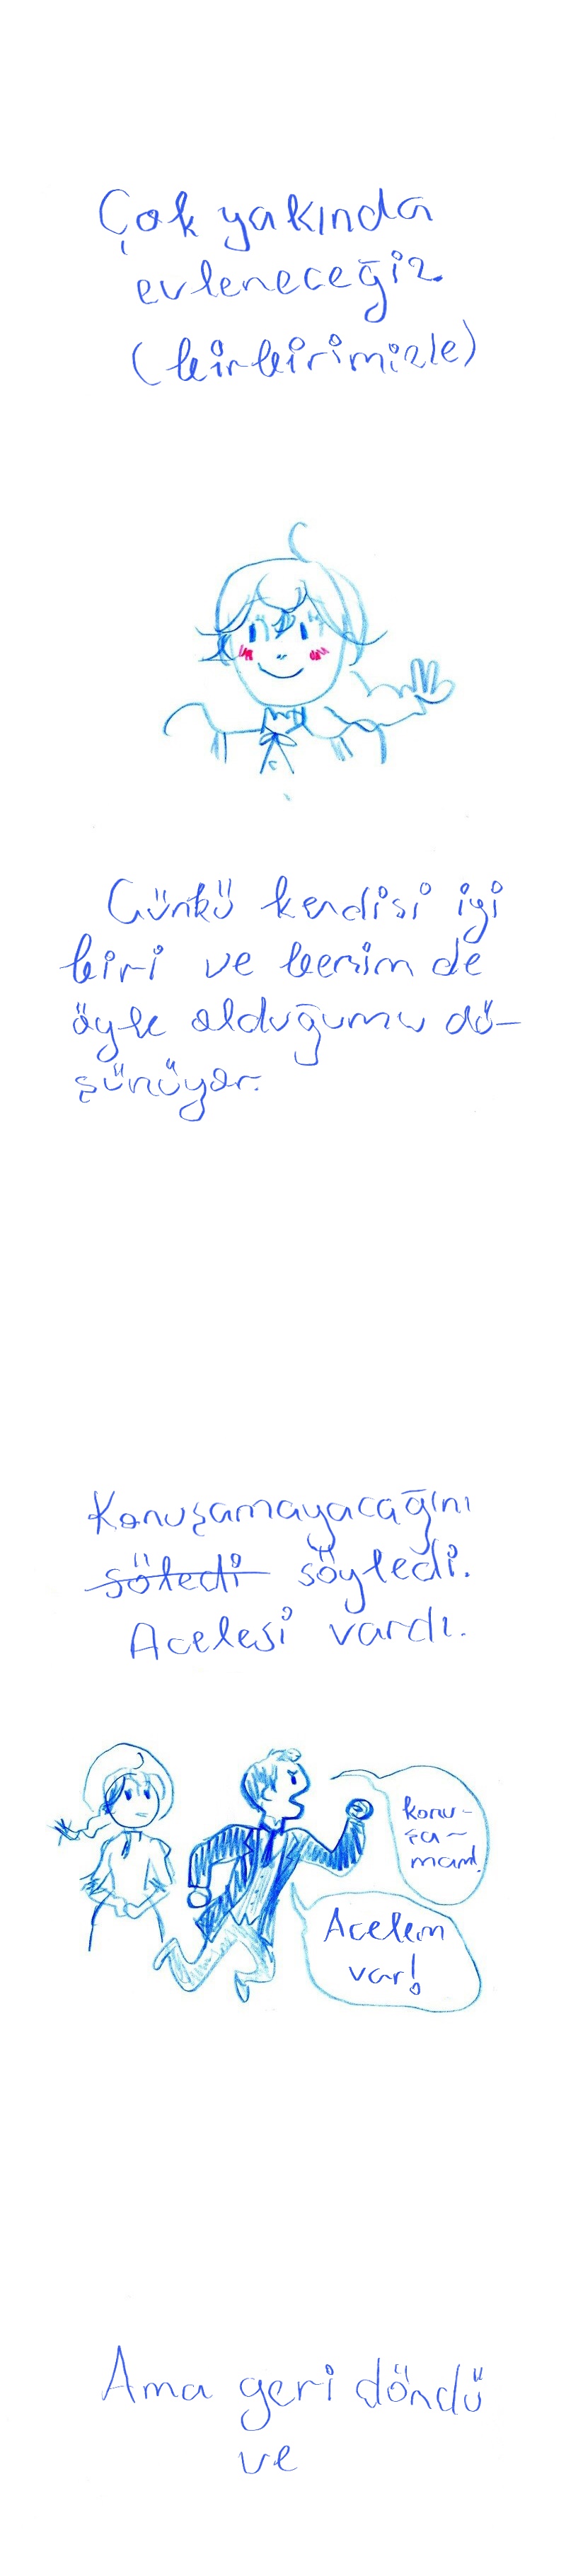 Çok yakında
evleneceğiz
(birbirimizle)
Çünkü kendisi iyi
biri ve benim de
öyle olduğumu dü-
şünüyor.
Konuşamayacağını
söledi söyledi.
Acelesi vardı.
konu-
şa-
mam!
Acelem
var!
Ama geri döndü
ve